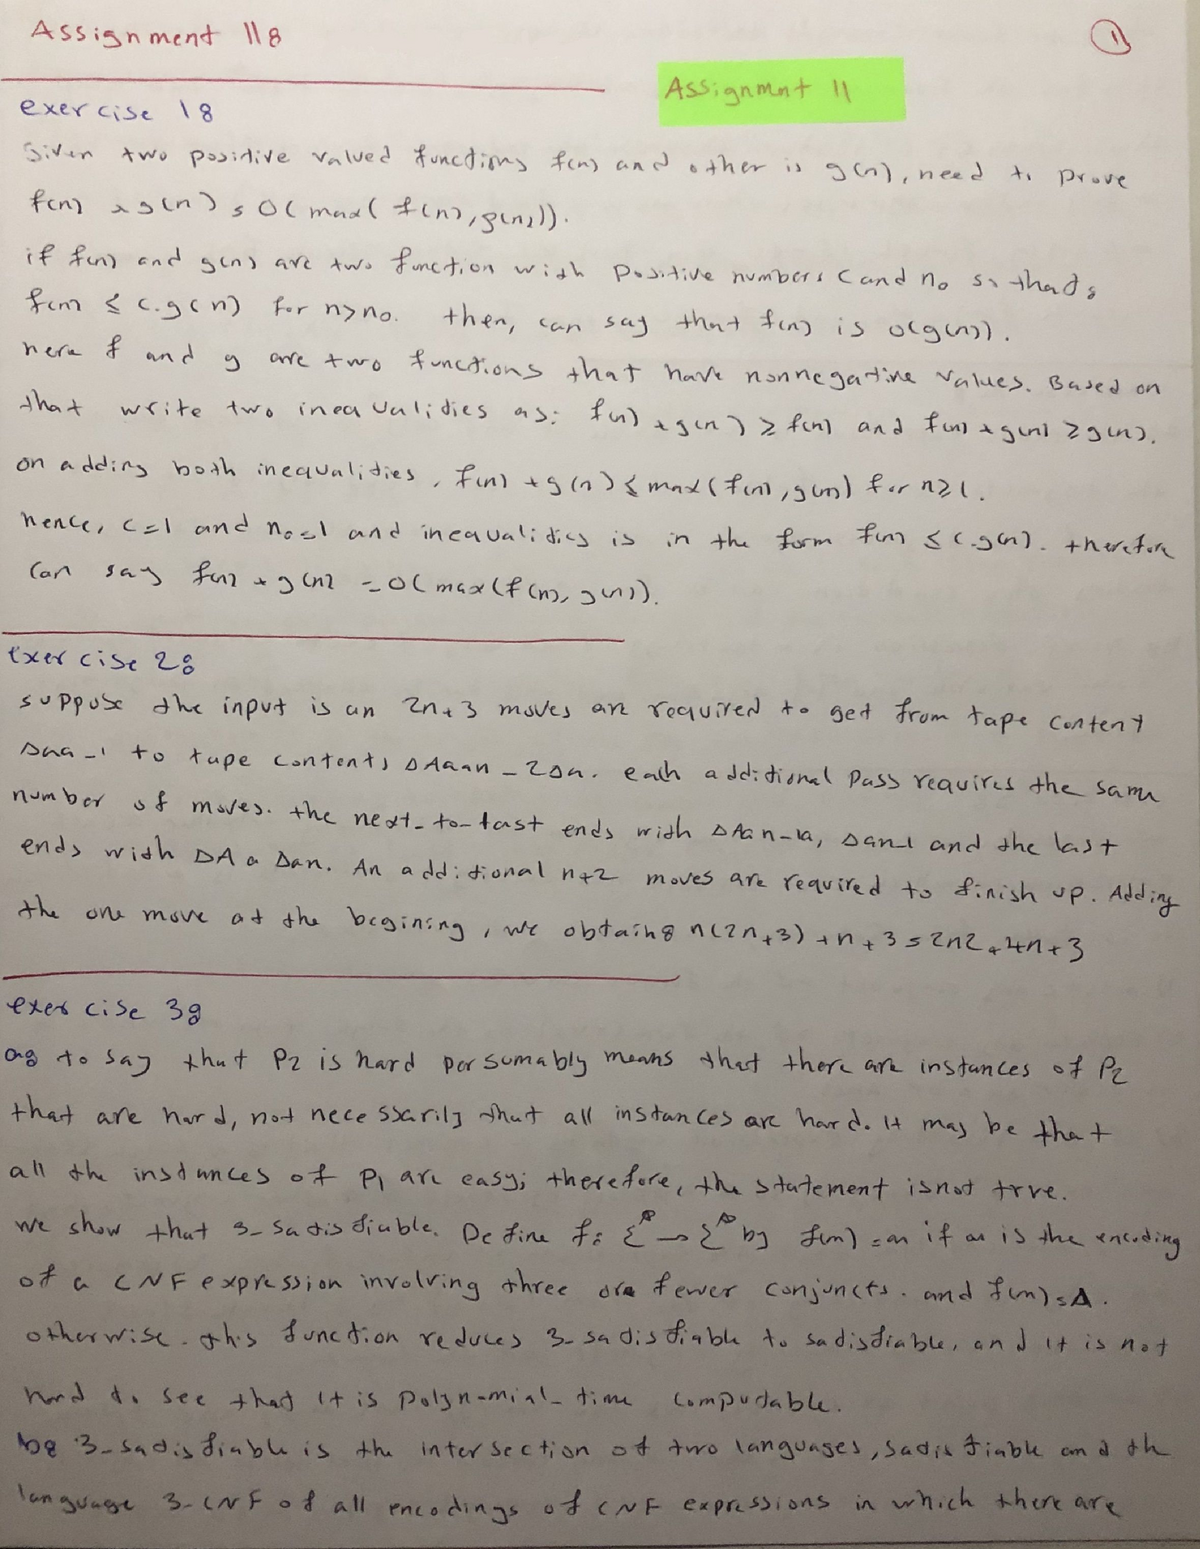 Assignment 11:
1
Assignmnt 11
exercise 1:
Given two positive valued functions f(n) and other is g(n), need to prove
f(n) + g(n) = O(max(f(n), g(n))).
if f(n) and g(n) are two function with positive numbers C and no so that:
f(n) ≤ c.g(n) for n>no. then, can say that f(n) is O(g(n)).
here f and g are two functions that have nonnegative values. Based on
that write two inequalities as: f(n) + g(n) ≥ f(n) and f(n) + g(n) ≥ g(n).
on adding both inequalities, f(n) + g(n) ≤ max(f(n), g(n)) for n≥1.
hence, c=1 and no=1 and inequalities is in the form f(n) ≤ c.g(n). therefore
can say f(n) + g(n) = O(max(f(n), g(n))).
exercise 2:
suppose the input is an 2n+3 moves are required to get from tape content
to tape contents ΔAaan-2Δa. each additional pass requires the same
number of moves. the next-to-last ends with ΔAan-1a, Δan-1 and the last
ends with ΔA a Δan. An additional n+2 moves are required to finish up. Adding
the one move at the begining, we obtain: n(2n+3)+n+3=2n2+4n+3
exercise 3:
a: to say that P2 is hard persumably means that there are instances of P2
that are hard, not necessarily that all instances are hard. It may be that
all the instances of P1 are easy; therefore, the statement is not true.
we show that 3-satisfiable. Define f: Σ* → Σ* by if is the encoding
of a CNF expression involving three or fewer conjuncts. and =Δ.
otherwise. this function reduces 3-satisfiable to satisfiable, and it is not
hard to see that it is polynomial-time computable.
b: 3-satisfiable is the intersection of two languages, satisfiable and the
language 3-CNF of all encodings of CNF expressions in which there are